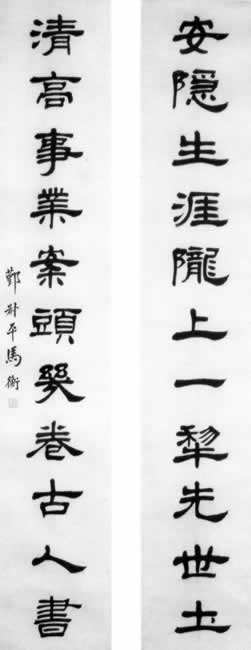 安隐生涯陇上一犁先世土
清高事業案頭幾卷古人書
鄞 叔平馬衡